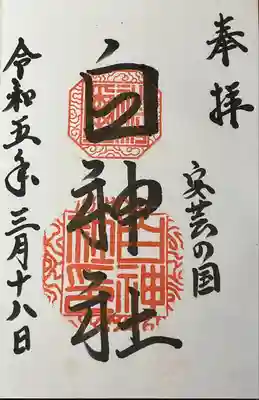 奉拝
安芸の国
白神社
令和五年三月十八日